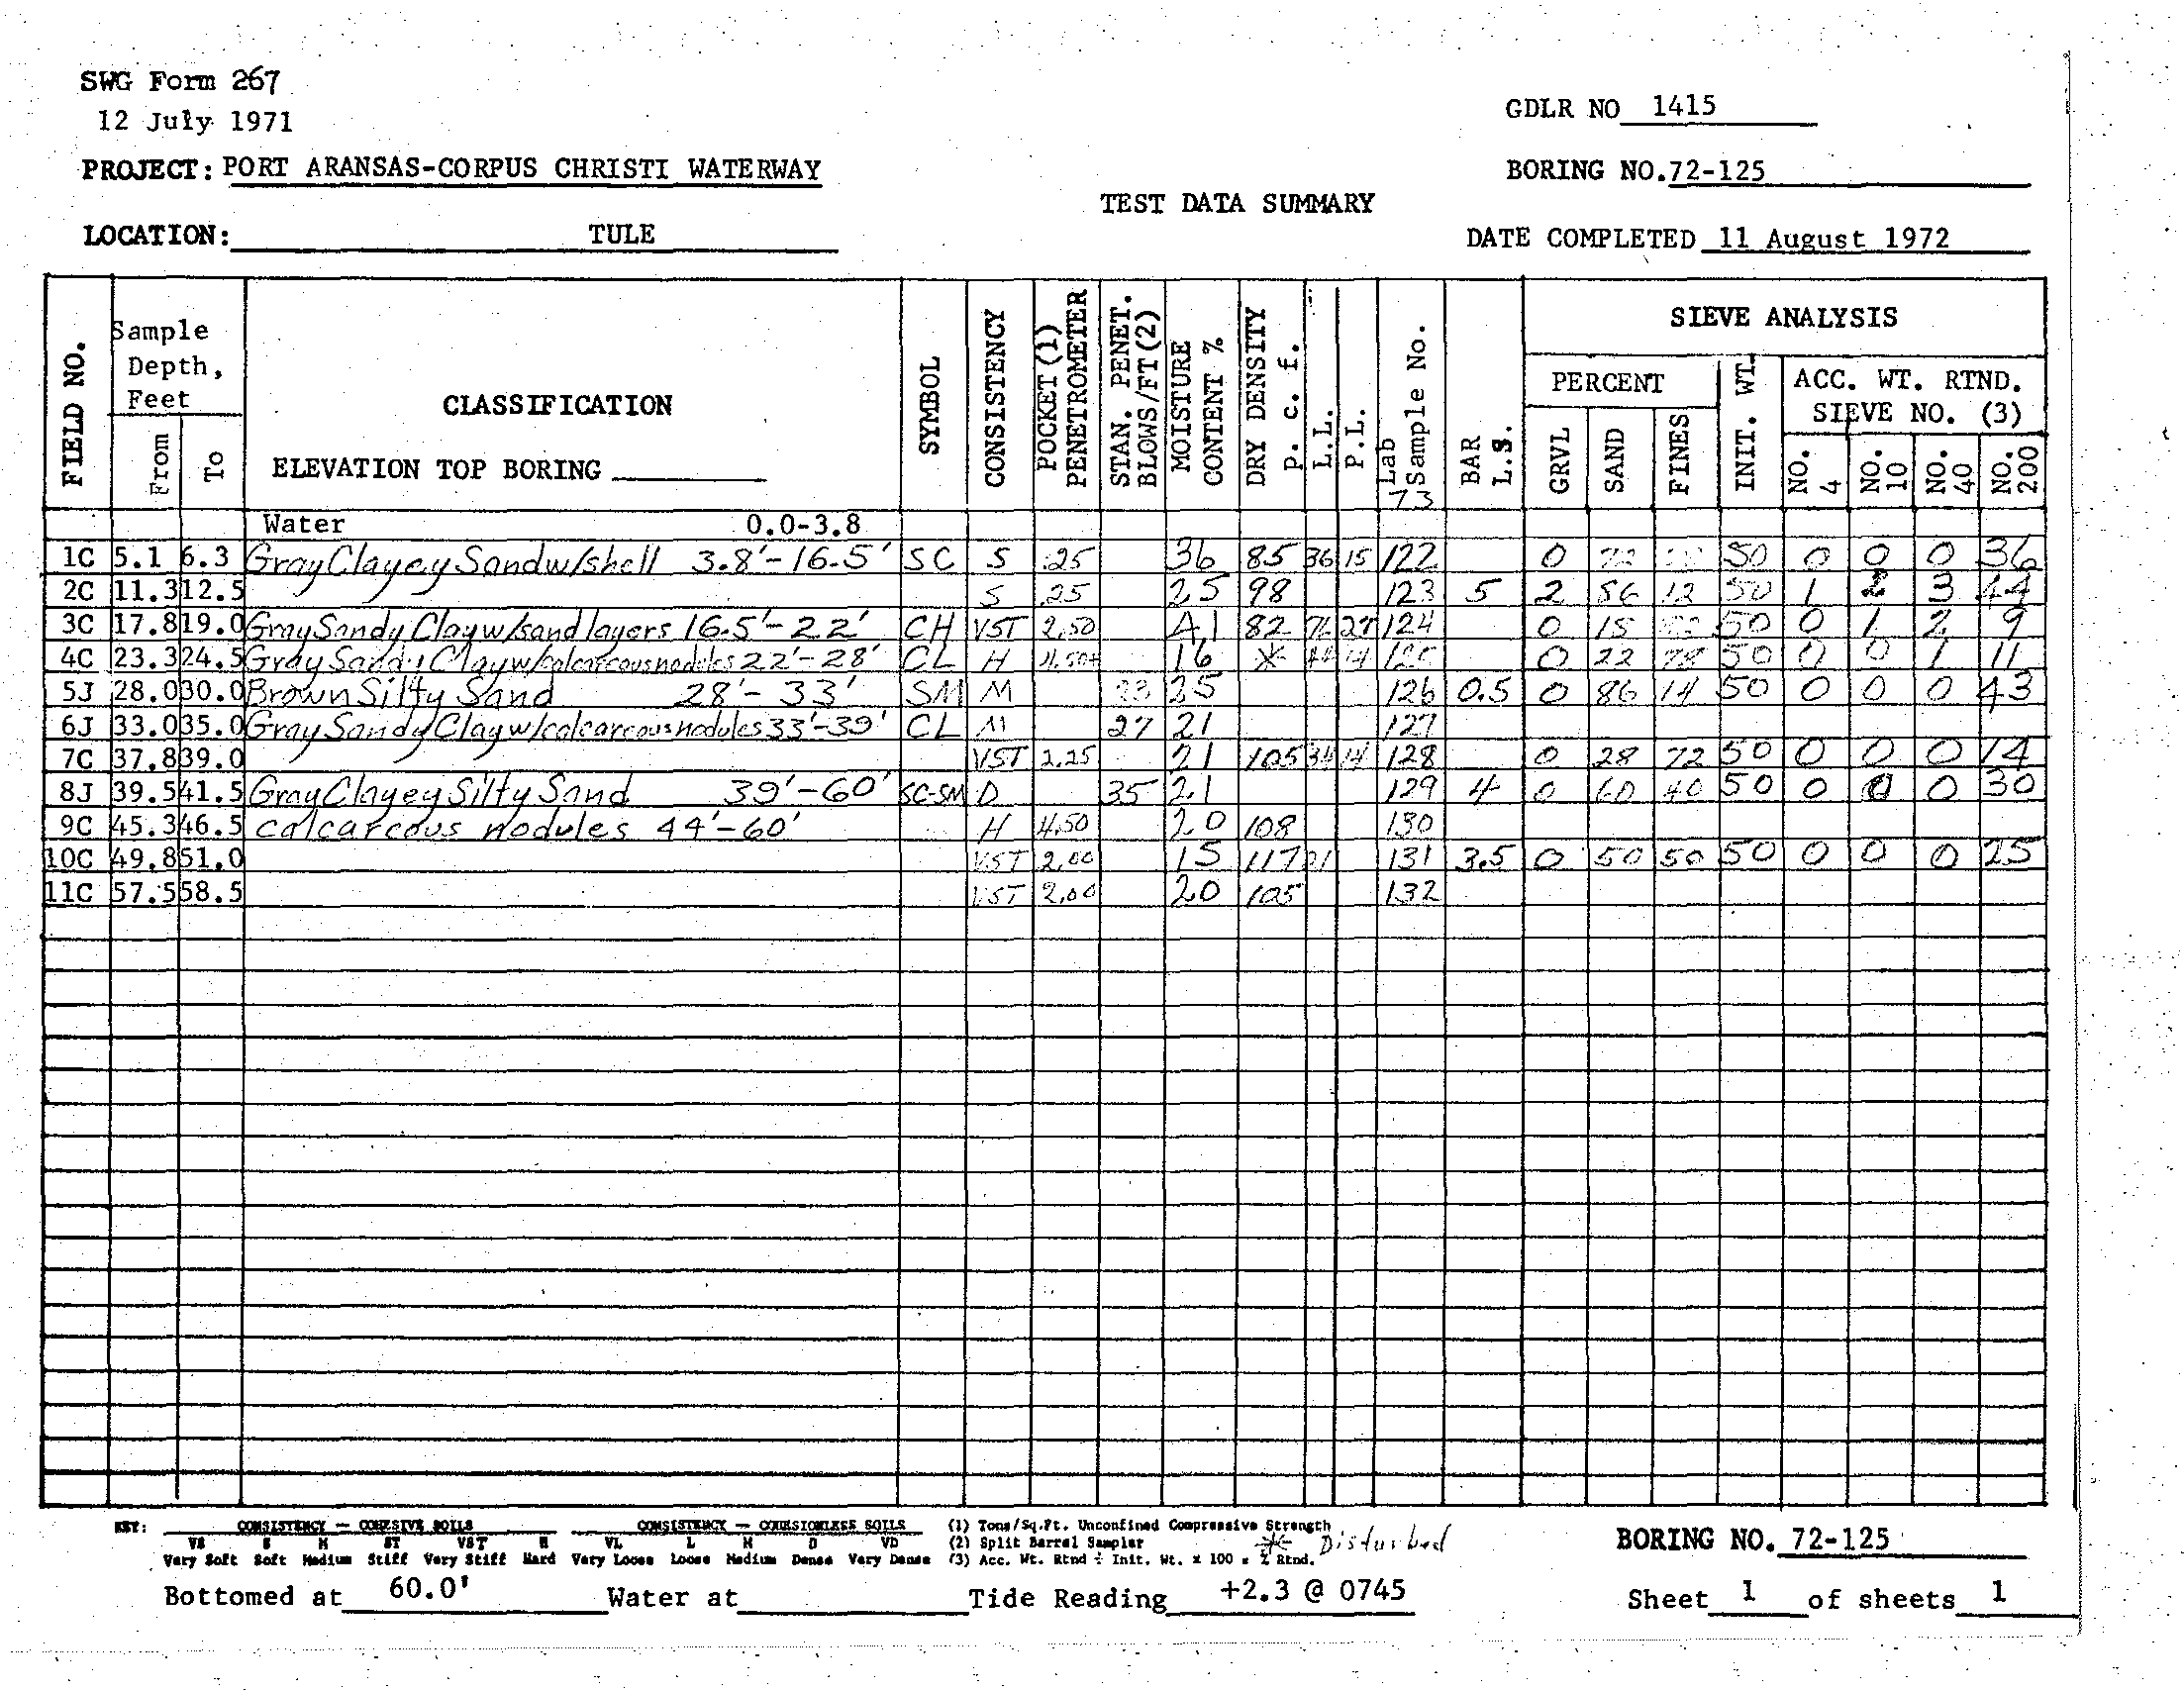 SWG Form 267
12 July 1971
GDLR NO 1415
PROJECT: PORT ARANSAS-CORPUS CHRISTI WATERWAY
BORING NO. 72-125
TEST DATA SUMMARY
LOCATION: TULE
DATE COMPLETED 11 August 1972
FIELD NO.
Sample Depth, Feet
From
To
CLASSIFICATION
ELEVATION TOP BORING
SYMBOL
CONSISTENCY
POCKET (1) PENETROMETER
STAN. PENET. BLOWS/FT (2)
MOISTURE CONTENT %
DRY DENSITY P. c. f.
L.L.
P.L.
Lab Sample No.
73
BAR L.S.
SIEVE ANALYSIS
PERCENT
GRVL
SAND
FINES
INIT. WT.
ACC. WT. RTND. SIEVE NO. (3)
NO. 4
NO. 10
NO. 40
NO. 200
Water 0.0-3.8
1C 5.1 6.3 Gray Clayey Sand w/shell 3.8'-16.5' SC S .25 36 85 36 15 122 0 50 0 0 0 36
2C 11.3 12.5 S .25 25 98 123 5 2 86 12 50 1 2 3 44
3C 17.8 19.0 Gray Sandy Clay w/sand layers 16.5'-22' CH VST 2.50 41 82 27 124 0 18 50 0 1 2 9
4C 23.3 24.5 Gray Sandy Clay w/calcareous nodules 22'-28' CL H 4.50+ 16 * 44 14 125 0 22 78 50 0 0 1 11
5J 28.0 30.0 Brown Silty Sand 28'-33' SM M 23 25 126 0.5 0 86 14 50 0 0 0 43
6J 33.0 35.0 Gray Sandy Clay w/calcareous nodules 33'-39' CL M 27 21 127
7C 37.8 39.0 VST 2.25 21 105 34 14 128 0 28 72 50 0 0 0 14
8J 39.5 41.5 Gray Clayey Silty Sand 39'-60' SC-SM D 35 21 129 4 0 60 40 50 0 0 0 30
9C 45.3 46.5 calcareous nodules 44'-60' H 4.50 20 108 130
10C 49.8 51.0 VST 2.00 15 117 21 131 3.5 0 50 50 50 0 0 0 25
11C 57.5 58.5 VST 2.00 20 105 132
KEY: CONSISTENCY — COHESIVE SOILS CONSISTENCY — COHESIONLESS SOILS (1) Tons/Sq.Ft. Unconfined Compressive Strength
VS S M ST VST H VL L M D VD (2) Split Barrel Sampler * Disturbed
Very Soft Soft Medium Stiff Very Stiff Hard Very Loose Loose Medium Dense Very Dense (3) Acc. Wt. Rtnd ÷ Init. Wt. x 100 = % Rtnd.
BORING NO. 72-125
Bottomed at 60.0' Water at Tide Reading +2.3 @ 0745 Sheet 1 of sheets 1